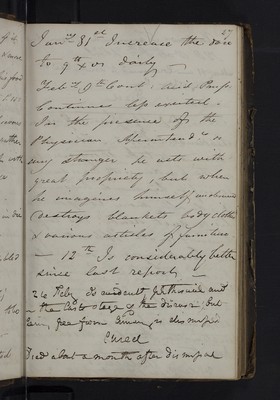 27
Janry 31st Increase the dose
to 9th x vs daily —
Feby 9th Cont: acid Prup.
Continues less excited.
In the presence of the
Physician Superintendt or
any stranger he acts with
great propriety; but when
he imagines himself
destroys blankets body clothes
& various articles of furniture
— 12th Is considerably better
since last report, —
26 Feby Is evidently and
in the last stage of the disease but
free from is dismissed
Cured
Died about a month after dismissal